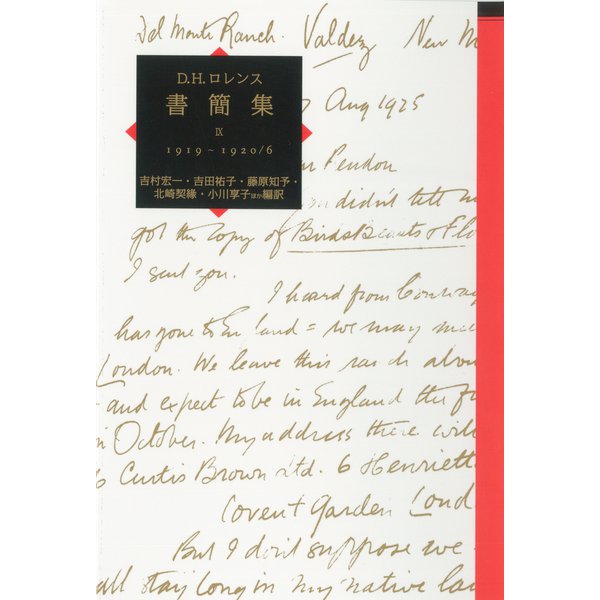 Del Monte Ranch. Valdez New M
D.H.ロレンス
書簡集
IX
1919～1920/6
吉村宏一・吉田祐子・藤原知予・
北崎契縁・小川享子ほか編訳
Aug 1925
Pendon
didn't tell
got the copy of Birds Beasts & Flo
I sent you.
I heard from Conway
has gone to En land = we may
London. We leave this ranch abou
and expect to be in England the fi
in October. My address there will
Curtis Brown Ltd. 6 Henriett
Covent Garden Lond
But I don't suppose we
all stay long in my native lan